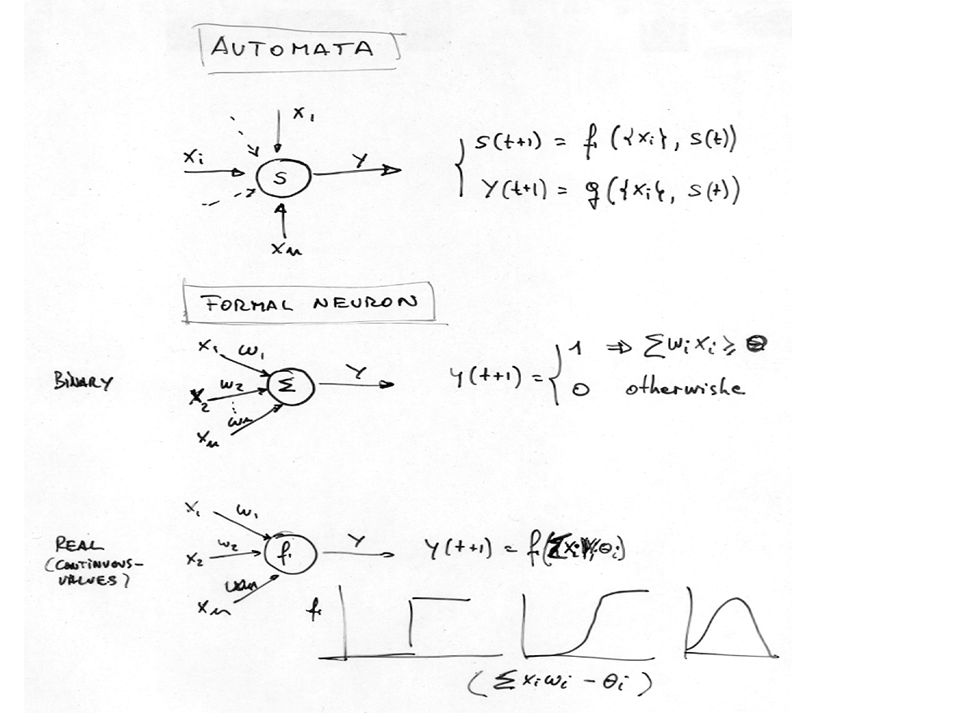 AUTOMATA
x1
xi
S
Y
xn
S(t+1) = f ({xi}, S(t))
Y(t+1) = g ({xi}, S(t))
FORMAL NEURON
BINARY
x1 w1
x2 w2
xn wn
Σ
Y
y(t+1) = { 1 ⇒ Σ wi xi ≥ Θ
0 otherwishe
REAL
(CONTINUOUS-
VALUES)
x1 w1
x2 w2
xn wn
f
Y
Y(t+1) = f(
f
(Σ xi wi - θi)